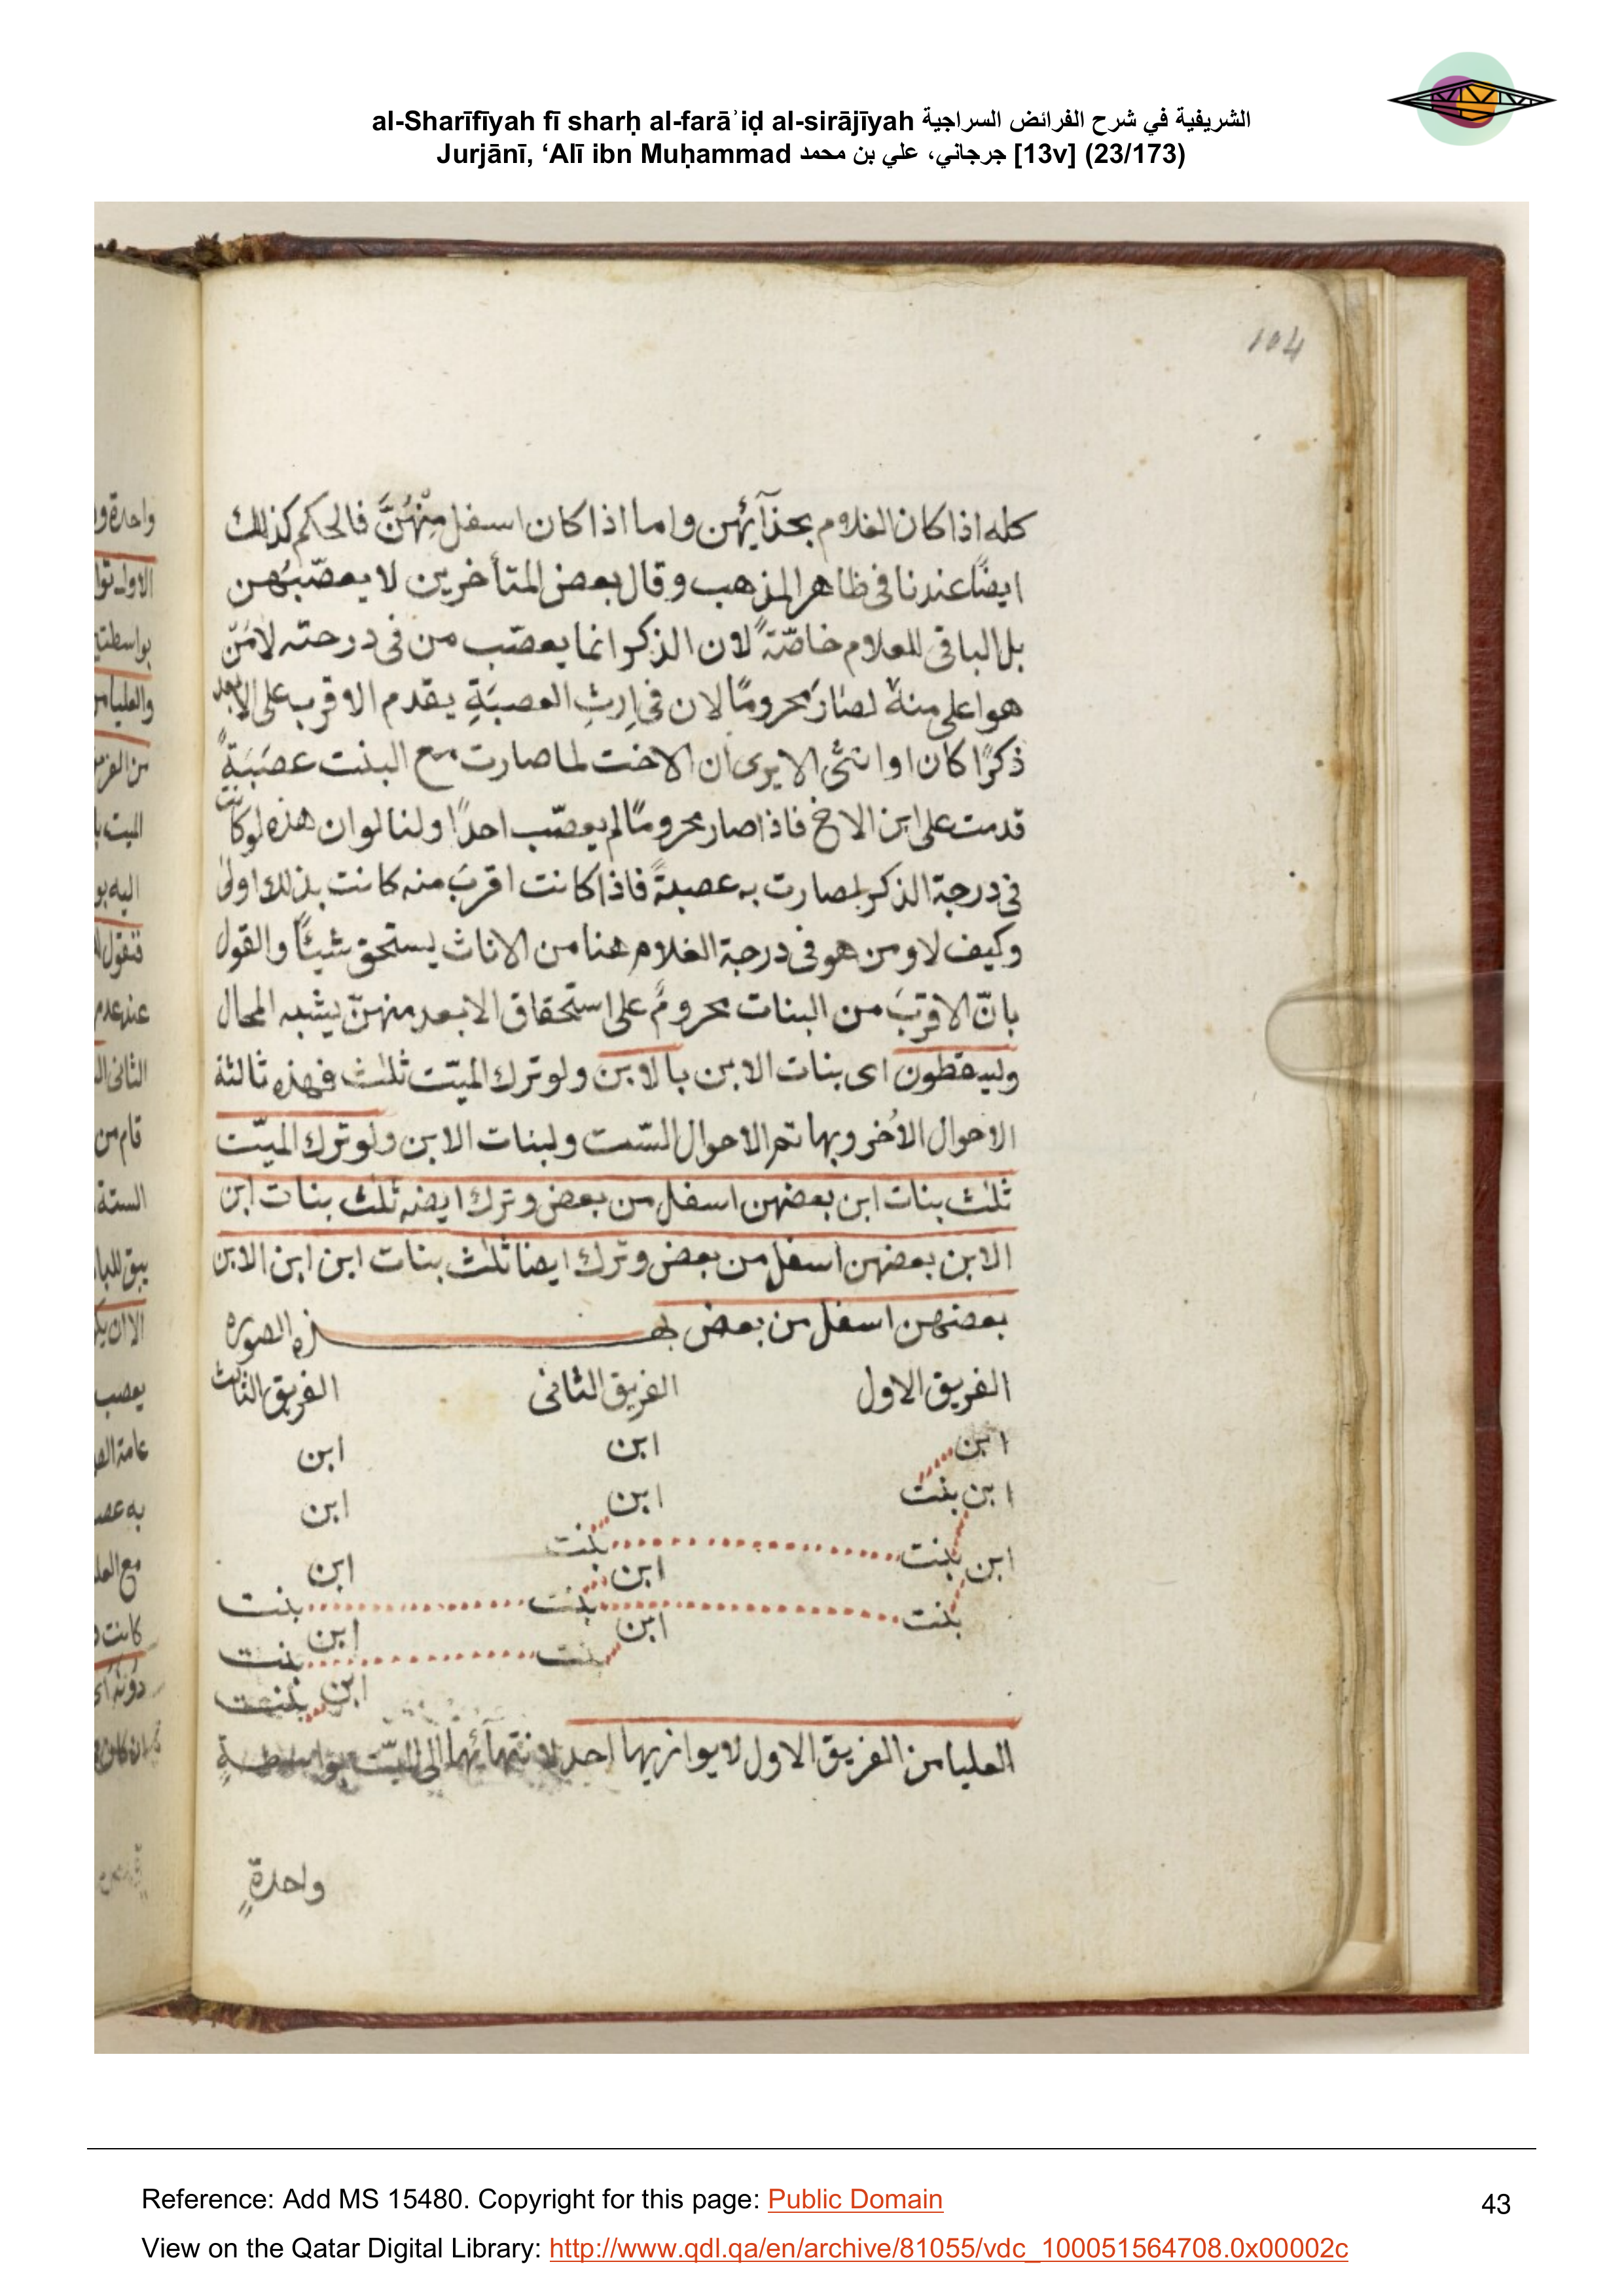 al-Sharīfīyah fī sharḥ al-farāʾiḍ al-sirājīyah الشريفية في شرح الفرائض السراجية
Jurjānī, ‘Alī ibn Muḥammad جرجاني، علي بن محمد [13v] (23/173)
104
كله اذا كان الغلام بحذآئهن واما اذا كان اسفل مِنْهُنَّ فالحكم كذلك
ايضًا عندنا فى ظاهر المذهب وقال بعض المتأخرين لا يعصّبُهن
بل الباقى للغلام خاصّةً لان الذكر انما يعصّب من فى درجته لا مَنْ
هو اعلى منه لصَارَ محرومًا لان فى اِرثِ العصبَةِ يقدم الاقرب على الابعد
ذكرًا كان او انثى الا يرى ان الاخت لما صارت مع البنت عصَبَةً
قدمت على ابن الاخ فاذا صار محرومًا لم يعصّب احدًا ولنا لو ان هذه لو كانت
فى درجة الذكر لصارت به عصبةً فاذا كانت اقربَ منه كانت بذلك اولى
وكيف لا ومن هو فى درجة الغلام هنا من الاناث يستحق شيئًا والقول
بانّ الاقربَ من البنات محرومٌ على استحقاق الابعد منهنّ يشبه المحال
وليسقطون اى بنات الابن بالابن ولو ترك الميّت ثلث فهذه ثالثة
الاحوال الاُخر وبها تم الاحوال الستّ ولبنات الابن ولو ترك الميّت
ثلث بنات ابن بعضهن اسفل من بعض وترك ايضه ثلث بنات ابن
الابن بعضهن اسفل من بعض وترك ايضا ثلث بنات ابن ابن الابن
بعضهن اسفل من بعض بهذه الصوره
الفريق الاول الفريق الثانى الفريق الثالث
ابن ابن ابن
ابن بنت ابن ابن
ابن بنت بنت
ابن ابن
بنت بنت بنت
ابن ابن
بنت بنت
ابن بنت
العليا من الفريق الاول لا يوازيها احد لانتهآئها الى الميّت بواسطةٍ
واحدةٍ
Reference: Add MS 15480. Copyright for this page: Public Domain
43
View on the Qatar Digital Library: http://www.qdl.qa/en/archive/81055/vdc_100051564708.0x00002c